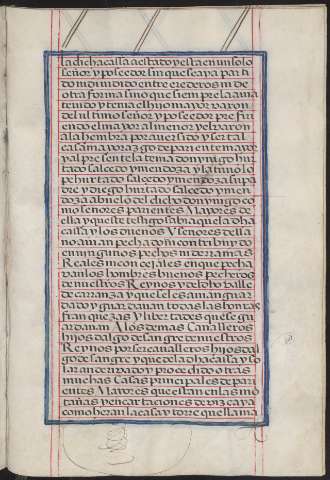 la dicha cassa a estado y esta en un solo
señor y poseedor sin que se aya parti
do ni dividido entre erederos ni de
otra forma sino que siempre la a vi
tenido y tema el hijo mayor varon
del ultimo señor y poseedor prefiri
endo el mayor al menor y el varon
a la hembra por aver sido y ser tal
casa mayorazgo de pariente mayor
y al presente la tema don yñigo hur
tado salcedo y mendoza y la tuvo lo
pe hurtado salcedo y mendoza su pa
dre y diego hurtado salcedo y men
doza abuelo del dicho don yñigo co
mo señores parientes Mayores de
ella y que este testigo sabia que la dha
cassa y los dueños y señores della
no avian pechado ni contribuydo
en ningunos pechos ni derramas
Reales ni concejales en que pecha
van los hombres buenos pecheros
de nuestros Reynos y del dho valle
de carranza y que les avian guar
dado y guardavan todas las honrras
franquezas y libertades que se gu
ardavan A los demas Cavalleros
hijos dalgo de sangre de nuestros
Reynos por ser cavalleros hijos dal
go de sangre y que de la dha casa y so
lar an derivado y procedido otras
muchas Casas principales de pari
entes Mayores que estan en las mo
tañas y encartaciones de vizcaya
como heran la casa y torre que llama